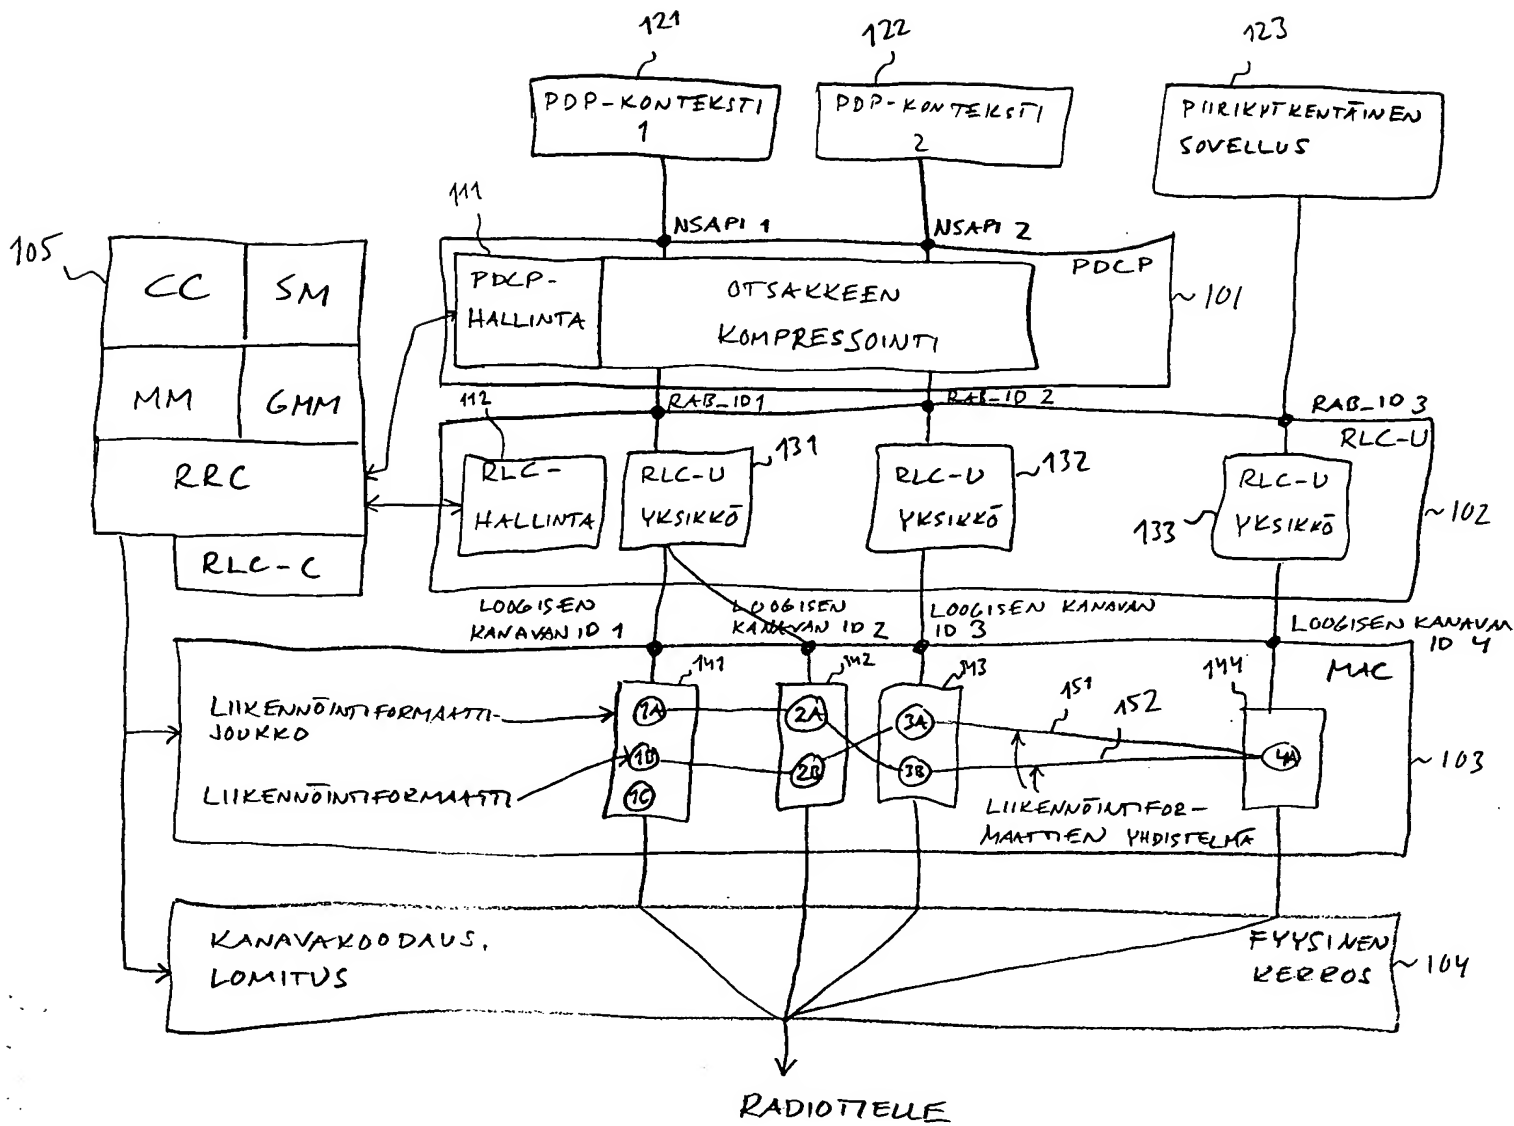 121
122
123
PDP-KONTEKSTI
1
PDP-KONTEKSTI
2
PIIRIKYTKENTÄINEN
SOVELLUS
111
NSAPI 1
NSAPI 2
105
CC
SM
MM
GMM
RRC
RLC-C
PDCP-
HALLINTA
OTSAKKEEN
KOMPRESSOINTI
PDCP
101
112
RAB_ID1
RAB_ID 2
RAB_ID 3
RLC-U
RLC-
HALLINTA
RLC-U
YKSIKKÖ
131
RLC-U
YKSIKKÖ
132
RLC-U
YKSIKKÖ
133
102
LOOGISEN
KANAVAN ID 1
LOOGISEN
KANAVAN ID 2
LOOGISEN KANAVAN
ID 3
LOOGISEN KANAVAN
ID 4
MAC
141
142
143
144
151
152
LIIKENNÖINTIFORMAATTI-
JOUKKO
LIIKENNÖINTIFORMAATTI
1A
1B
1C
2A
2B
3A
3B
4A
LIIKENNÖINTIFOR-
MAATTIEN YHDISTELMÄ
103
KANAVAKOODAUS,
LOMITUS
FYYSINEN
KERROS
104
RADIOTIELLE